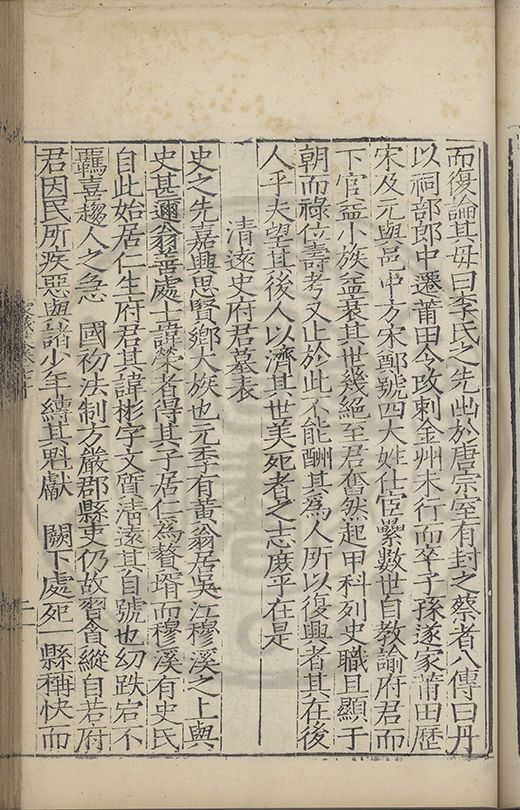 而復論其毋曰李氏之先出於唐宗室有封之蔡者八傳曰丹
以祠部郎中遷莆田令改刺金州未行而卒子孫遂家莆田歷
宋及元與邑中方宋鄭號四大姓仕宦纍數世自教諭府君而
下官益小族益衰其世幾絕至君奮然起甲科列史職且顯于
朝而祿位壽考又止於此不能酬其為人所以復興者其在後
人乎夫望其後人以濟其世美死者之志庶乎在是
清遠史府君墓表
史之先嘉興思賢鄉大族也元季有黃翁居吳江穆溪之上與
史甚邇翁善處士諱榮者得其子居仁為贅壻而穆溪有史氏
自此始居仁生府君其諱彬字文質清遠其自號也幼跌宕不
羈喜趨人之急 國初法制方嚴郡縣吏仍故習貪縱自若府
君因民所疾惡與諸少年縛其魁獻 闕下處死一縣稱快而